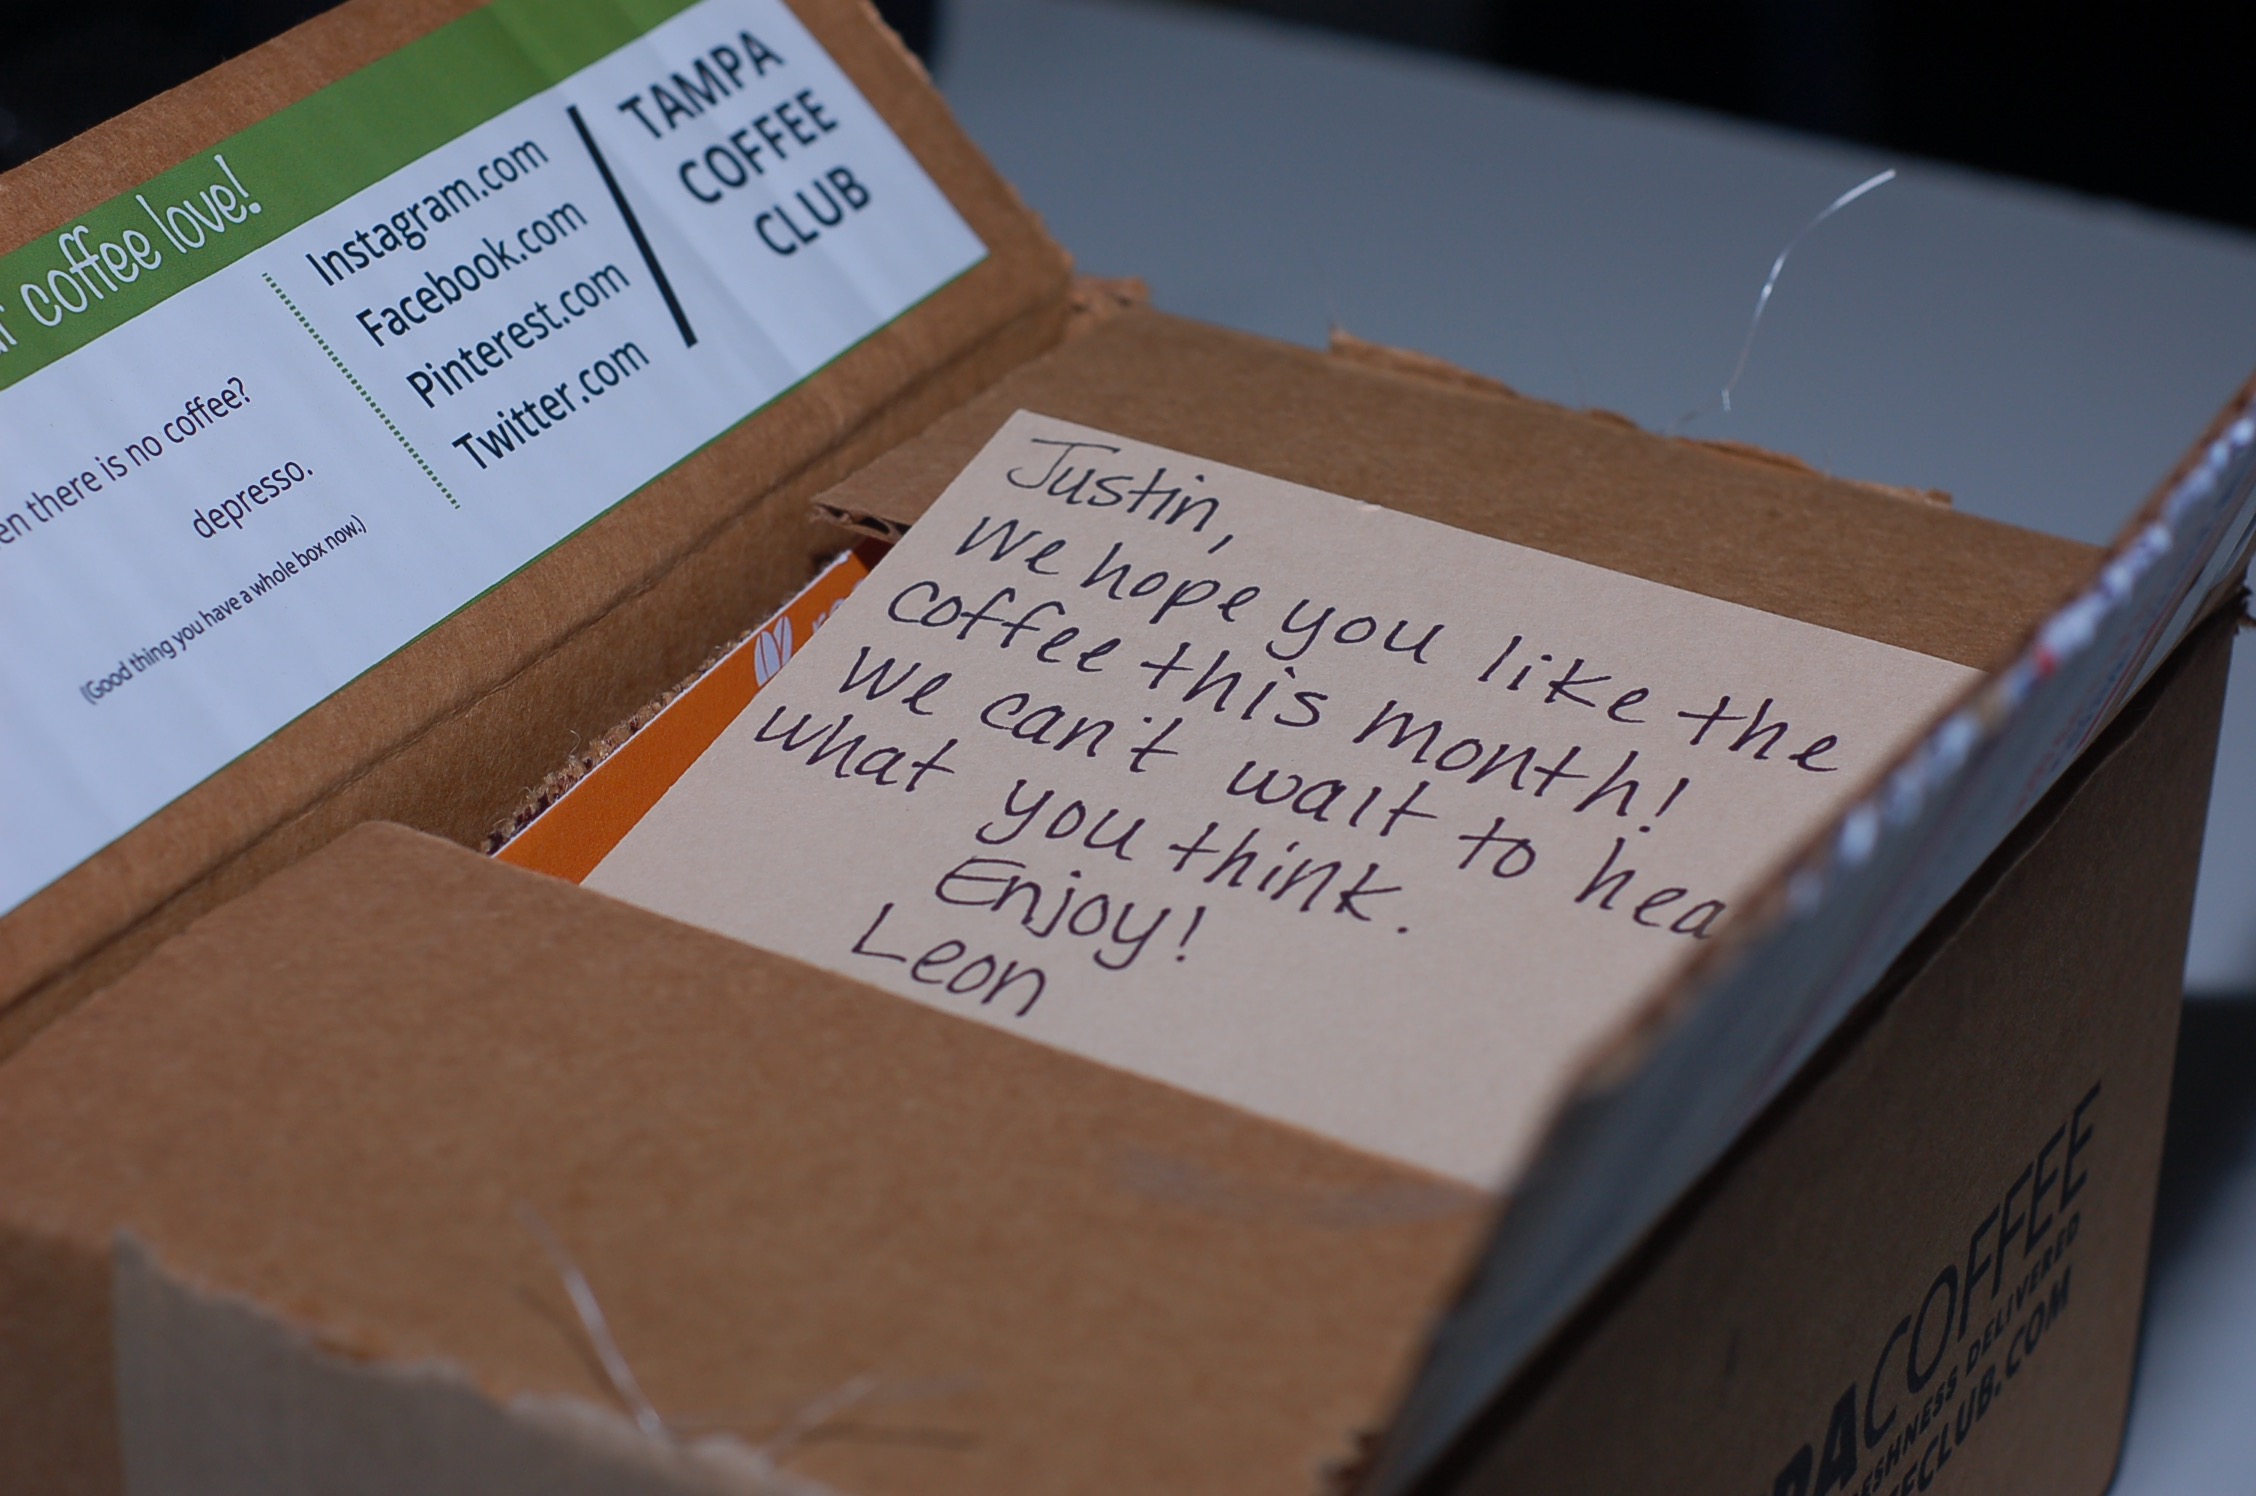 coffee love!
there is no coffee?
depresso.
(Good thing you have a whole box now.)
Instagram.com
Facebook.com
Pinterest.com
Twitter.com
TAMPA
COFFEE
CLUB
Justin,
We hope you like the
coffee this month!
We can't wait to hea
what you think.
Enjoy!
Leon
PACOFFEE
ESHNESS DELIVERED
EECLUB.COM